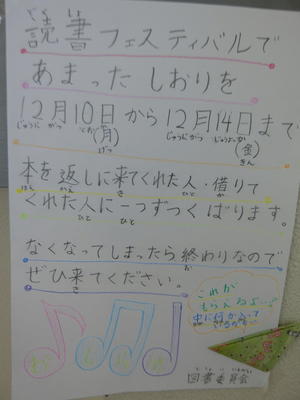 読書フェスティバルで
あまった しおりを
12月10日(月)から12月14日(金)まで
本を返しに来てくれた人・借りて
くれた人に一つずつくばります。
なくなってしまったら終わりなので
ぜひ来てください。
これが
もらえるよ…♪
図書委員会